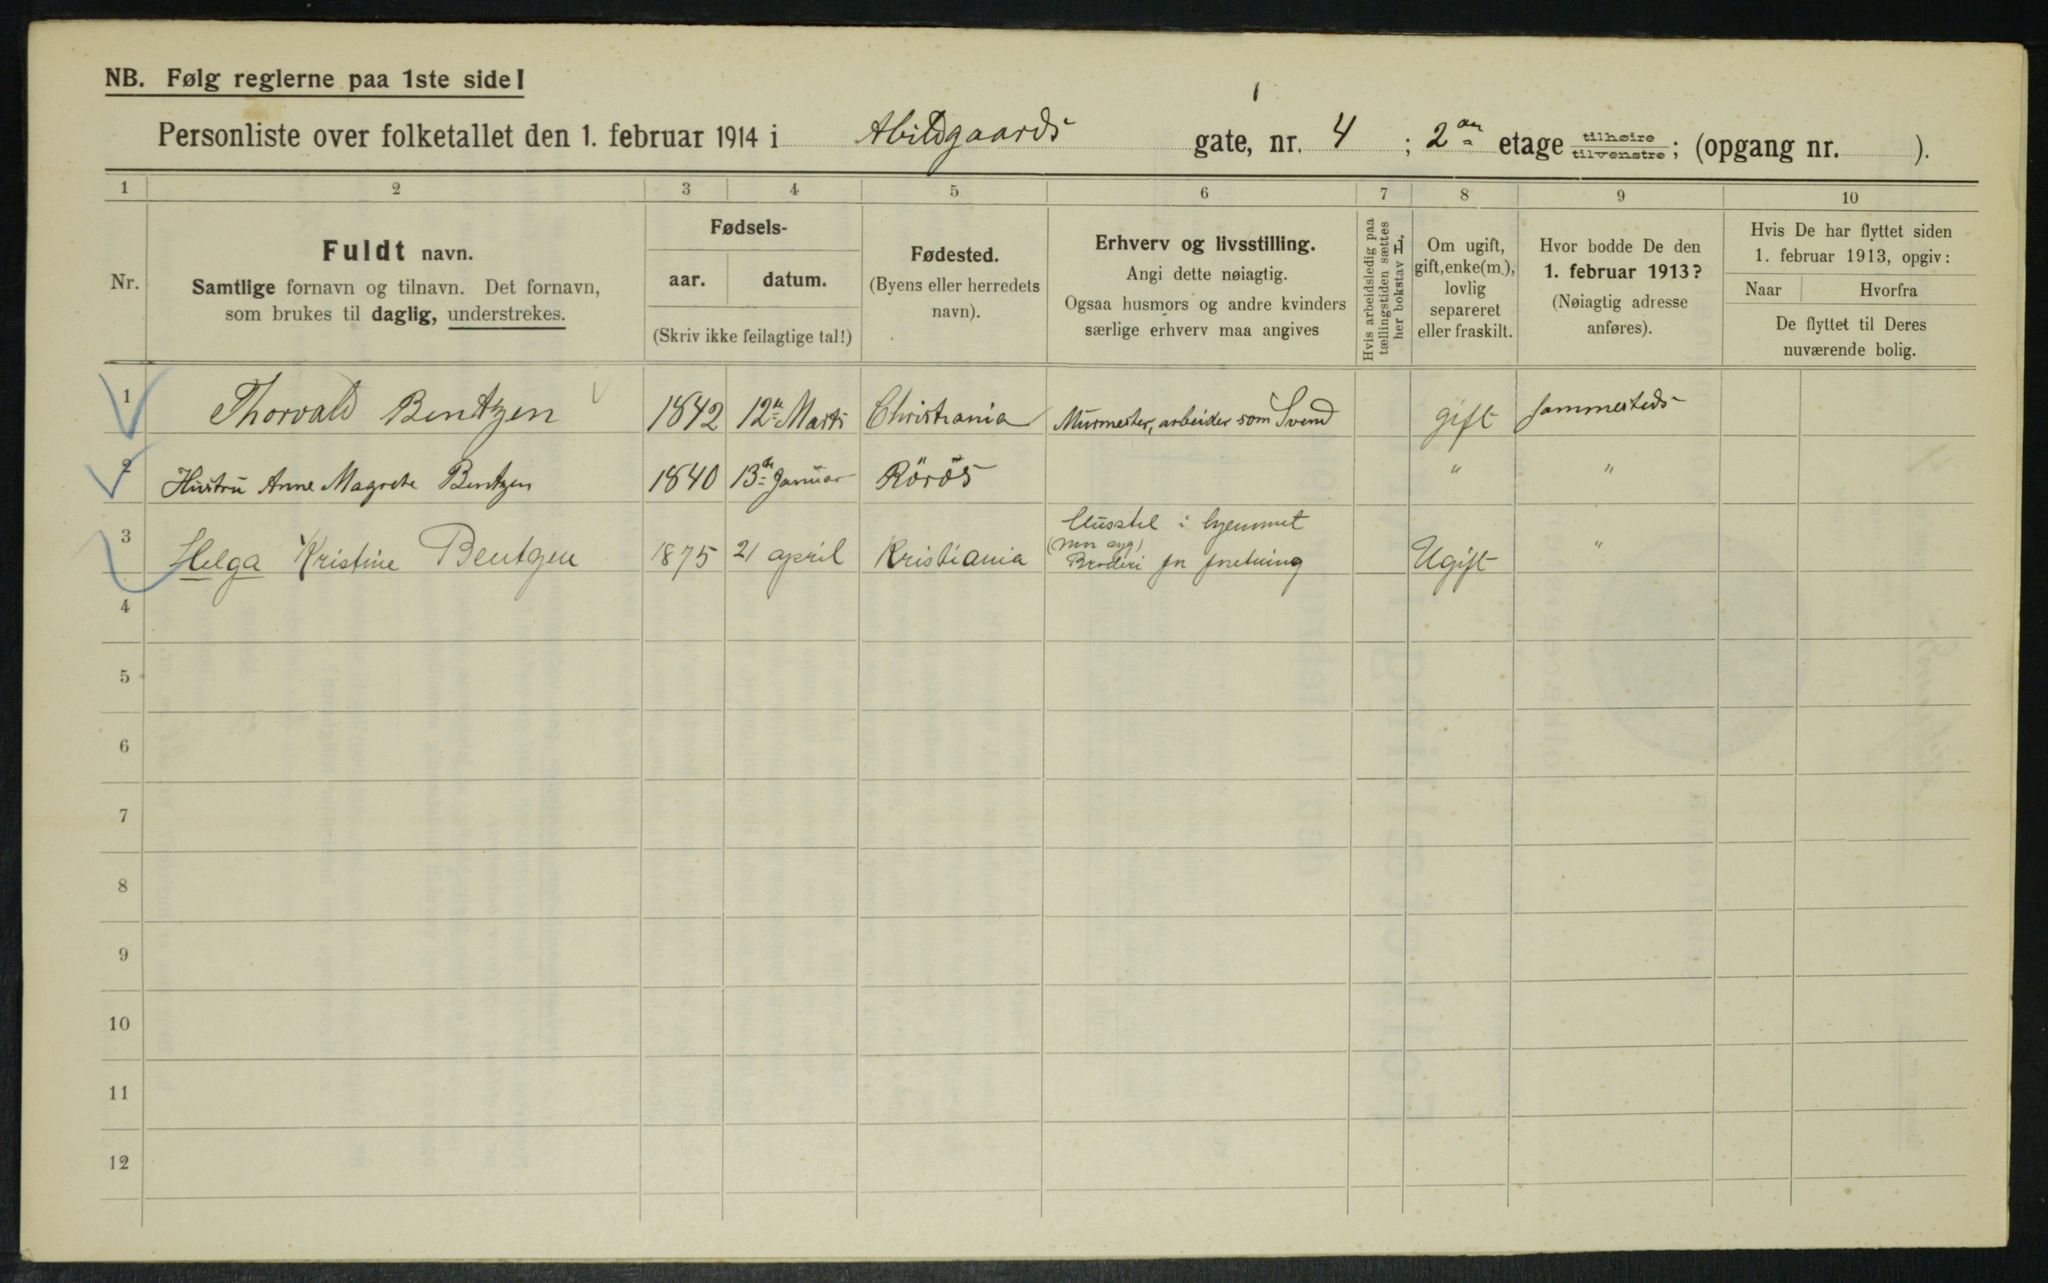 NB. Følg reglerne paa 1ste side!
Personliste over folketallet den 1. februar 1914 i Abildgaards gate, nr. 4 ; 2 etage tilhøire tilvenstre; (opgang nr. ).
1 2 3 4 5 6 7 8 9 10
Nr.
Fuldt navn.
Samtlige fornavn og tilnavn. Det fornavn,
som brukes til daglig, understrekes.
Fødsels-
aar. datum.
(Skriv ikke feilagtige tal!)
Fødested.
(Byens eller herredets
navn).
Erhverv og livsstilling.
Angi dette nøiagtig.
Ogsaa husmors og andre kvinders
særlige erhverv maa angives
Hvis arbeidsledig paa
tællingstiden sættes
her bokstav L.
Om ugift,
gift, enke(m.),
lovlig
separeret
eller fraskilt.
Hvor bodde De den
1. februar 1913?
(Nøiagtig adresse
anføres).
Hvis De har flyttet siden
1. februar 1913, opgiv:
Naar Hvorfra
De flyttet til Deres
nuværende bolig.
1 Thorvald Bentzen 1842 12te Marts Christiania Murmester, arbeider som Svend gift sammesteds
2 Hustru Anne Magrete Bentzen 1840 13de Januar Röros " "
3 Helga Kristine Bentzen 1875 21 april Kristiania Husstel i hjemmet
(mor syg)
Broderi for foretning Ugift "
4
5
6
7
8
9
10
11
12